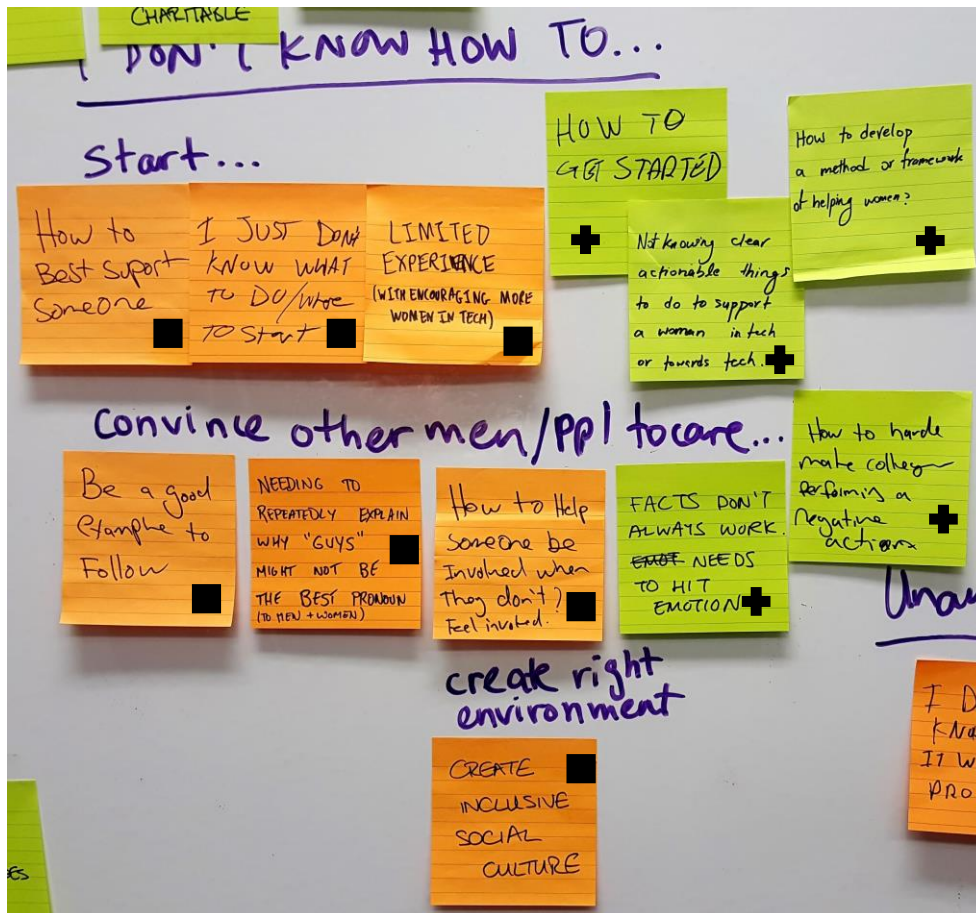 CHARITABLE
I DON'T KNOW HOW TO...
Start...
How to
Best Suport
Someone
I JUST DON'T
KNOW WHAT
TO DO/where
TO Start
LIMITED
EXPERIENCE
(WITH ENCOURAGING MORE
WOMEN IN TECH)
HOW TO
GET STARTED
Not knowing clear
actionable things
to do to support
a woman in tech
or towards tech.
How to develop
a method or framework
of helping women?
Convince other men/ppl to care...
Be a good
example to
Follow
NEEDING TO
REPEATEDLY EXPLAIN
WHY "GUYS"
MIGHT NOT BE
THE BEST PRONOUN
(TO MEN + WOMEN)
How to Help
Someone be
Involved when
They don't?
Feel invited.
FACTS DON'T
ALWAYS WORK.
EMOT NEEDS
TO HIT
EMOTION
How to
make
performing a
negative
actions
create right
environment
CREATE
INCLUSIVE
SOCIAL
CULTURE
I D
KNO
IT W
PRO
ES